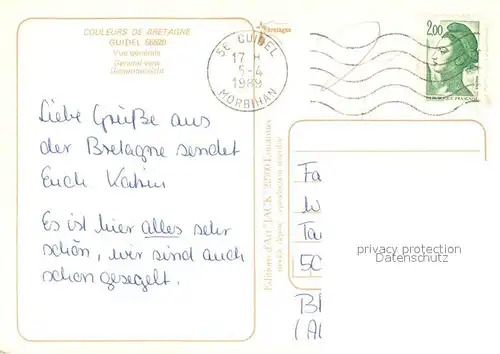 COULEURS DE BRETAGNE
GUIDEL 56520
Vue générale
General view
Gesamtansicht
Bretagne
56 GUIDEL
17 H
5-4
1989
MORBIHAN
2,00
REPUBLIQUE FRANÇAISE
Liebe Grüße aus
der Bretagne sendet
Euch Katrin
Es ist hier alles sehr
schön, wir sind auch
schon gesegelt.
Editions d'Art "JACK"
Fa
W
Ta
50
Bl
(Al
privacy protection
Datenschutz